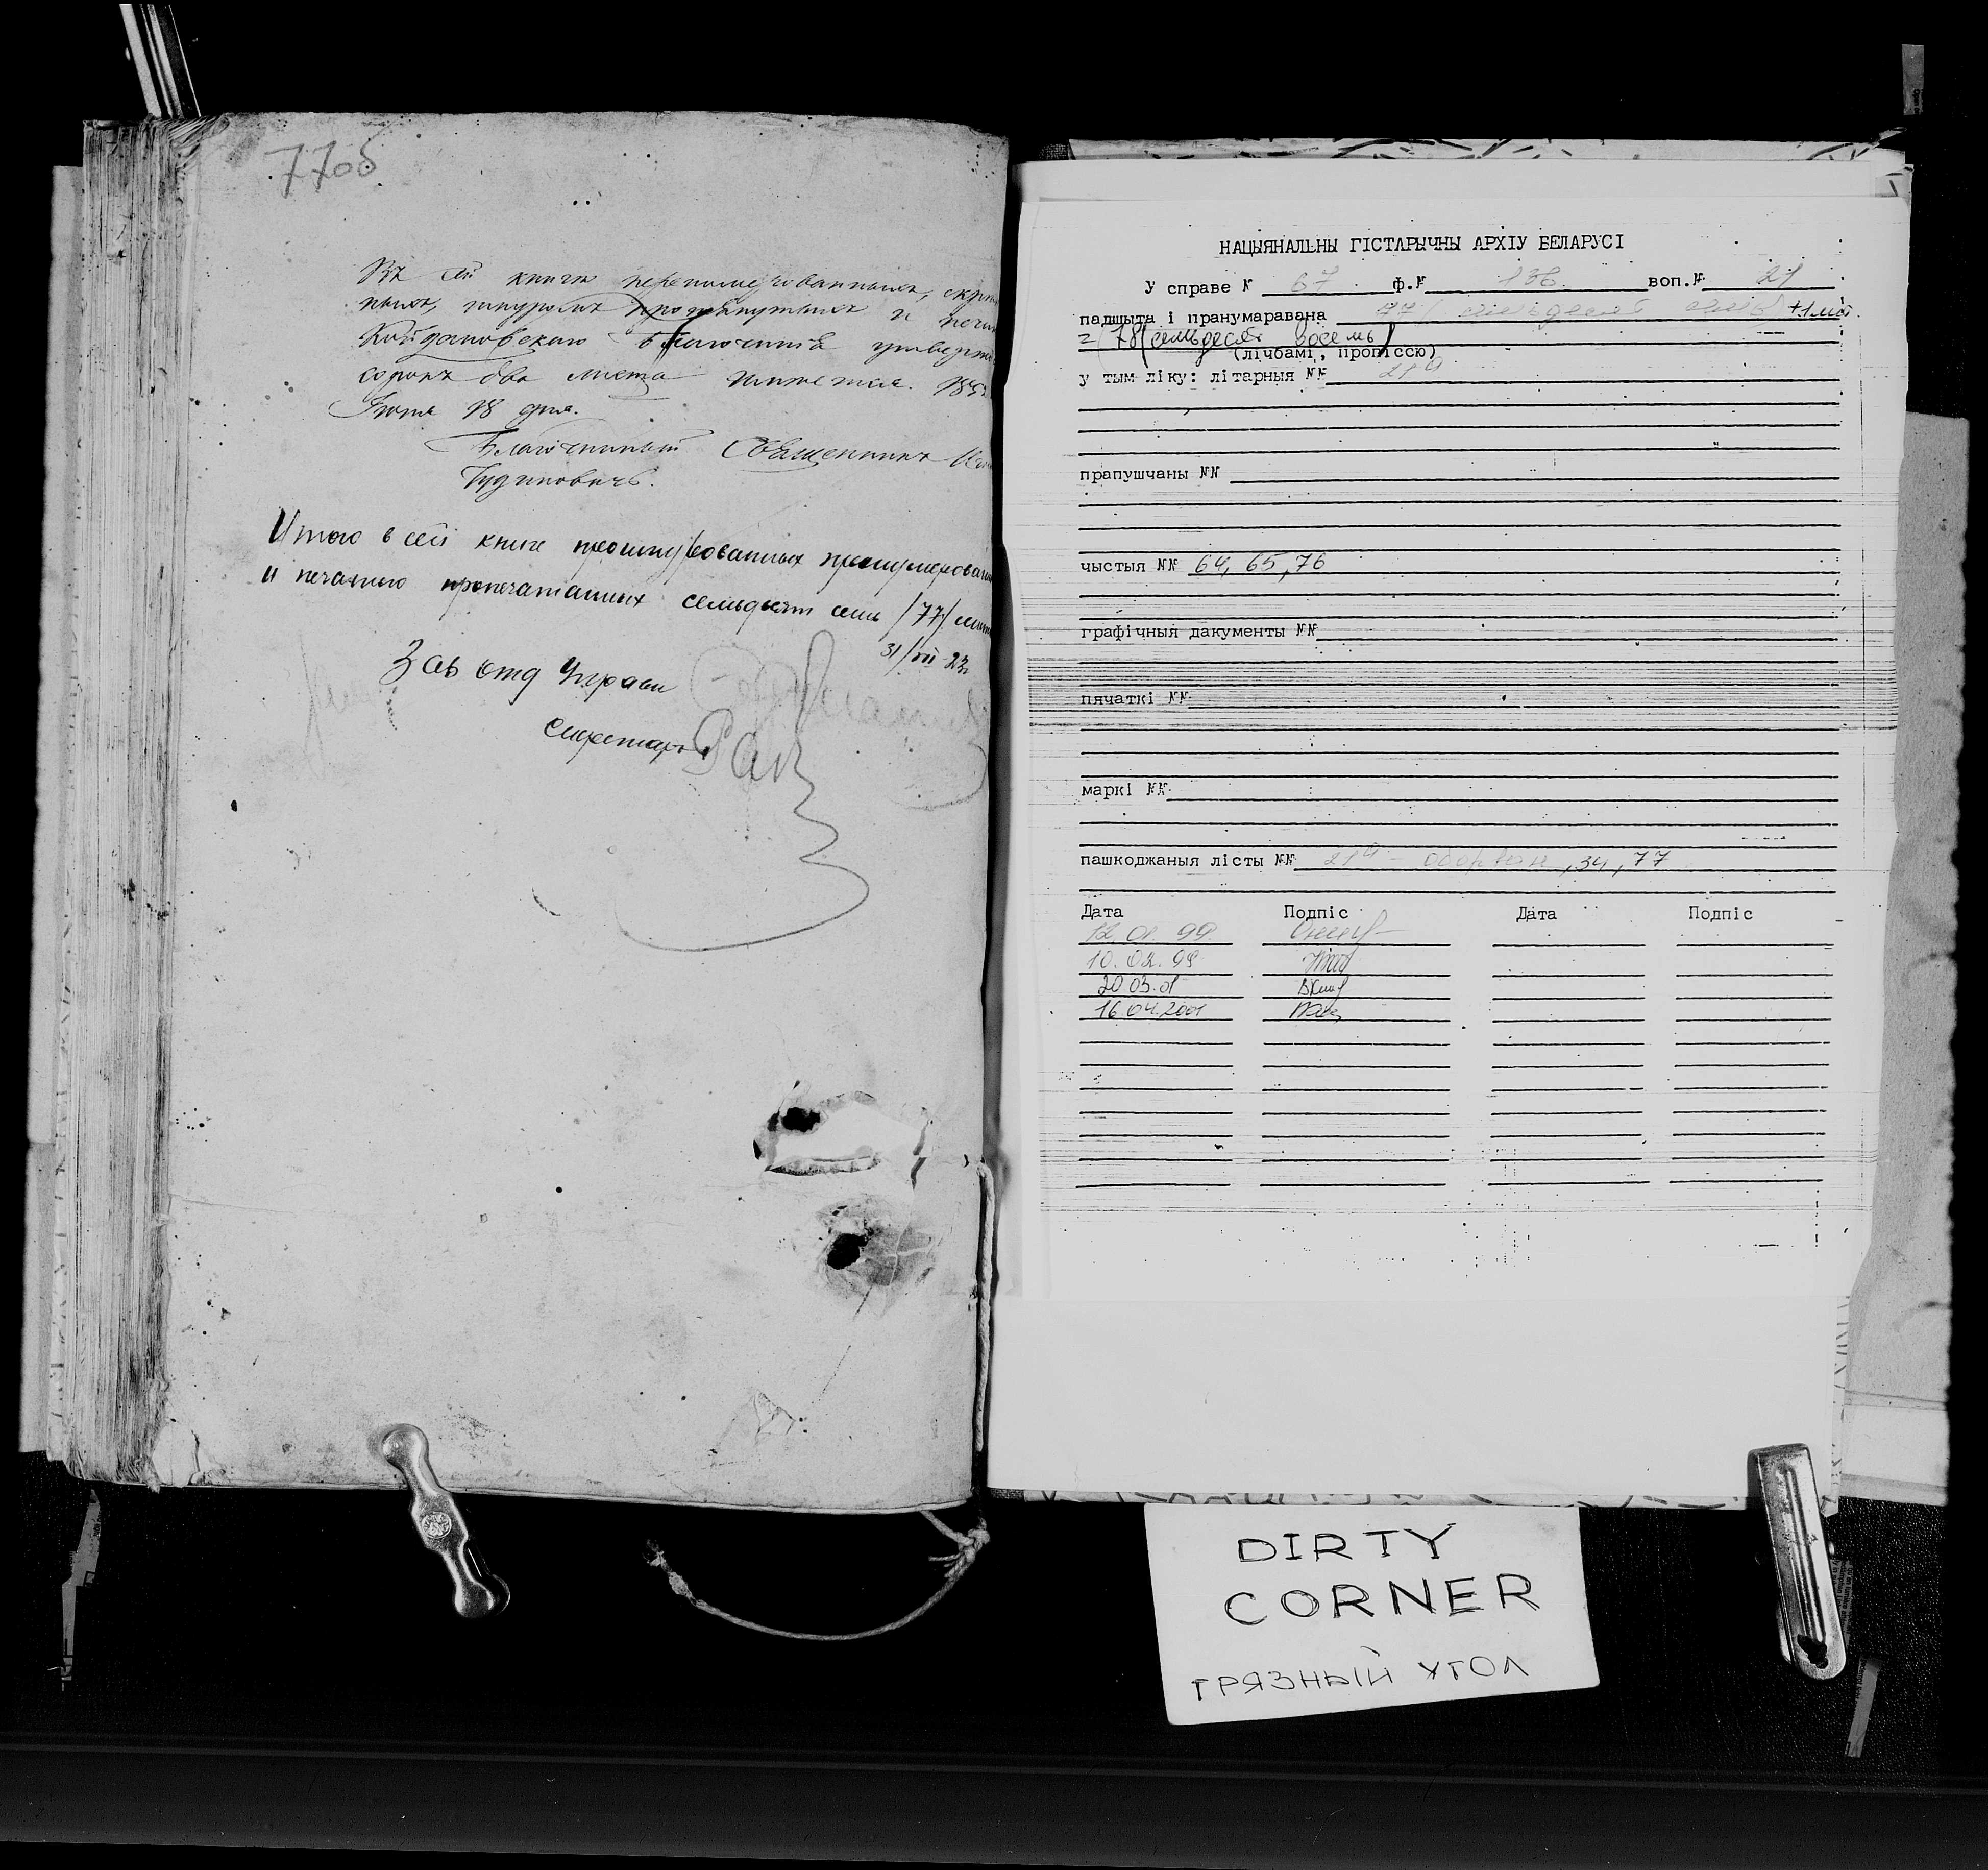 77об
Въ сей книгѣ перенумерованныхъ, скрѣп
ныхъ, шнуромъ протянутыхъ и печат
Койдановскаго благочинія утвержд
сорокъ два листа имѣется. 185
Іюня 18 дня.
Благочинный Священникъ
Итого в сей книге прошнурованных пронумерован
и печатью пропечатанных семьдесят семь /77/ лист
31/VII 23
Зав отд Управи
Секретарь Рак
НАЦЫЯНАЛЬНЫ ГІСТАРЫЧНЫ АРХІУ БЕЛАРУСІ
У справе № 67 ф.№ 136 воп.№ 21
падшыта і пранумаравана 77/ семьдесят семь +1лит.
=/78/семьдесят восемь/
(лічбамі, пропіссю)
у тым ліку: літарныя №№ 21а
прапушчаны №№
чыстыя №№ 64, 65, 76
графічныя дакументы №№
пячаткі №№
маркі №№
пашкоджаныя лісты №№ 21а - оборван, 34, 77
Дата Подпіс Дата Подпіс
12.01.99
10.02.99
20.03.01
16.04.2001
DIRTY
CORNER
ГРЯЗНЫЙ УГОЛ